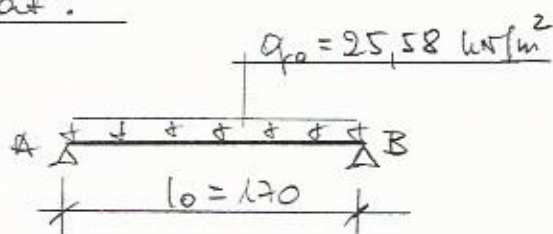 q₀ = 25,58 kN/m²
A B
l₀ = 1.70